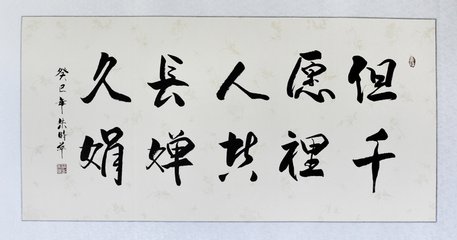 但愿人長久
千裡共婵娟
癸巳年